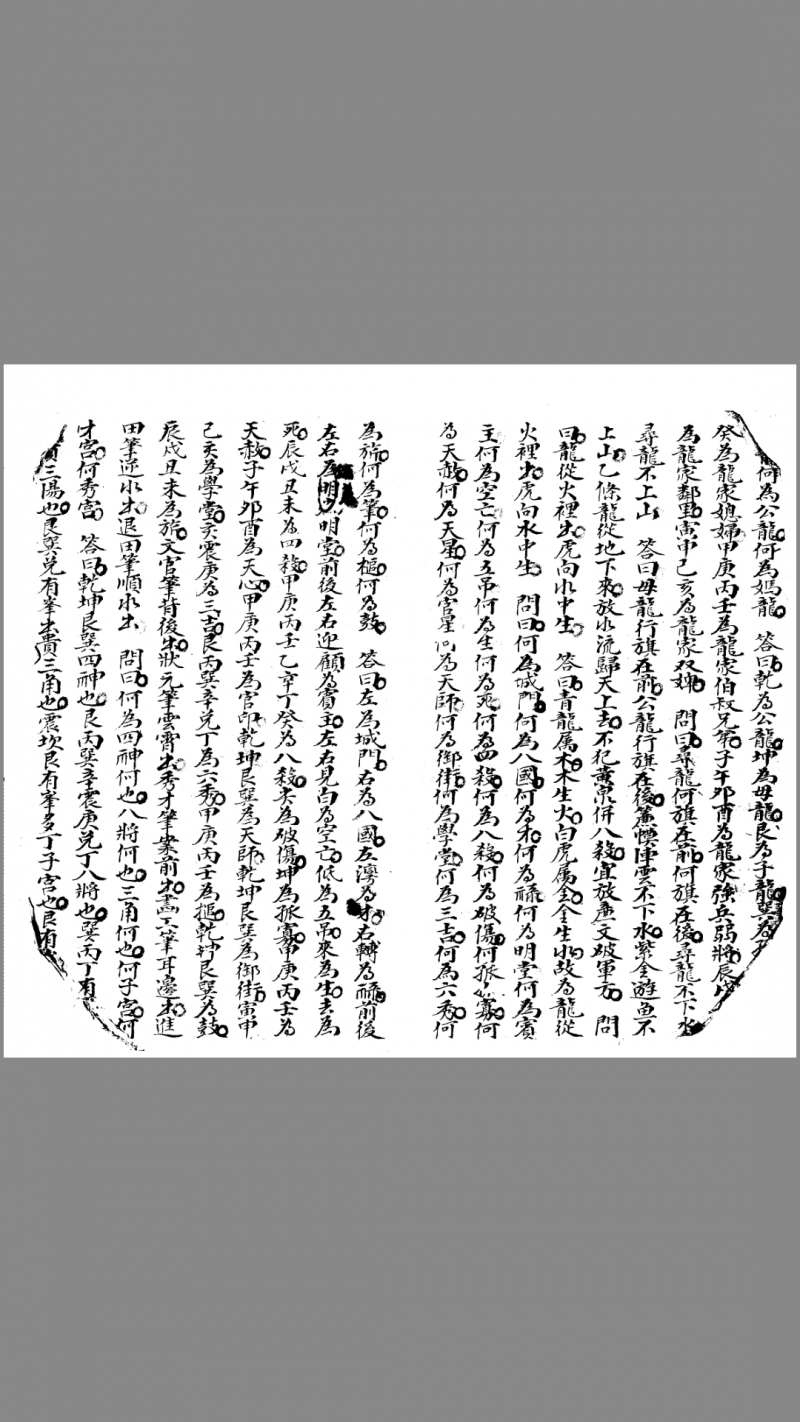 何為公龍何為媽龍 答曰乾為公龍坤為母龍艮為子龍巽為
癸為龍家媳婦甲庚丙壬為龍家伯叔兄弟子午卯酉為龍家強兵弱將辰戌
為龍家鄰里寅申己亥為龍家双婢 問曰尋龍何旗在前何旗在後尋龍不下水
尋龍不上山 答曰母龍行旗在前公龍行旗在後簾幙陣雲不下水紫金遊魚不
上山乙條龍從地下來放水流歸天上去不犯黃泉併八殺宜放廉文破軍方 問
曰龍從火裡出虎向水中生 答曰青龍属木木生火白虎属金金生水故為龍從
火裡出虎向水中生 問曰何為城門何為八國何為求何為祿何為明堂何為賓
主何為空亡何為五吊何為生何為死何為四殺何為八殺何為破傷何孤寡何
為天赦何為天星何為官星何為天師何為御街何為學堂何為三吉何為六秀何
為旂何為筆何為樞何為鼓 答曰左為城門右為八國左灣為求右轉為祿前後
左右為明明堂前後左右迎顧為賓主左右見白為空亡低為五吊來為生去為
死辰戌丑未為四殺甲庚丙壬乙辛丁癸為八殺尖為破傷坤為孤寡甲庚丙壬為
天赦子午卯酉為天心甲庚丙壬為官印乾坤艮巽為天師乾坤艮巽為御街寅申
己亥為學堂亥震庚為三吉艮丙巽辛兌丁為六秀甲庚丙壬為樞乾坤艮巽為鼓
辰戌丑未為旂文官筆背後出狀元筆雲霄出秀才筆案前出畫工筆耳邊出進
田筆逆水出退田筆順水出 問曰何為四神何也八將何也三角何也何子宮何
才宮何秀宮 答曰乾坤艮巽四神也艮丙巽辛震庚兌丁八將也巽丙丁有
三陽也艮巽兌有峯出貴三角也震坎艮有峯多丁子宮也艮有